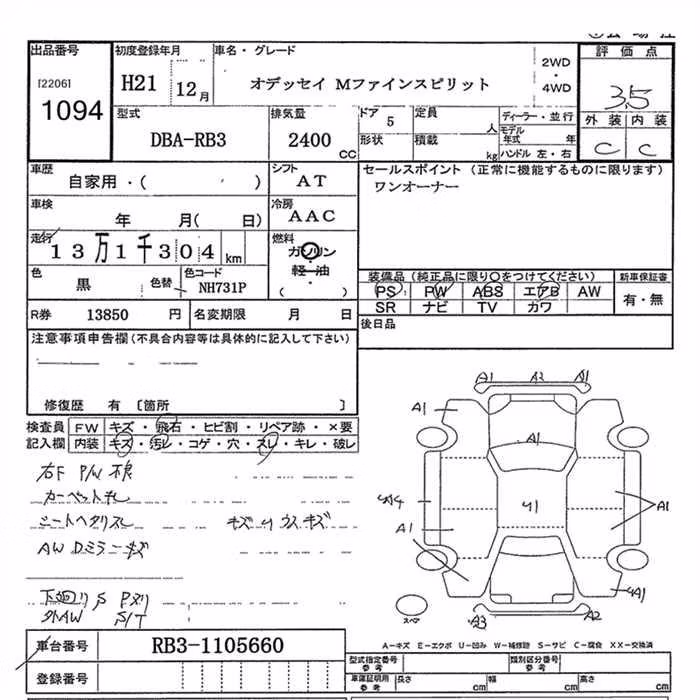 出品番号
[2206]
1094
初度登録年月
H21 12月
車名・グレード
オデッセイ Mファインスピリット
2WD
・
4WD
評価点
3.5
外装 内装
C C
型式
DBA-RB3
排気量
2400
CC
ドア 5
形状
定員
人
積載
kg
ディーラー・並行
モデル
年式 年
ハンドル 左・右
車歴
自家用・( )
シフト
AT
車検
年 月( 日)
冷房
AAC
走行
13万1千304 km
燃料
ガソリン
・
軽・油
・
( )
色
黒
色替
色コード
NH731P
セールスポイント (正常に機能するものに限ります)
ワンオーナー
装備品(純正品に限り○をつけてください)
PS PW ABS エアB AW
SR ナビ TV カワ
新車保証書
有・無
R券 13850 円
名変期限 月 日
後日品
注意事項申告欄(不具合内容等は具体的に記入して下さい)
修復歴 有 〔箇所 〕
検査員
記入欄
FW キズ・飛石・ヒビ割・リペア跡・×要
内装 キズ・汚レ・コゲ・穴・スレ・キレ・破レ
右F P/W 不良
カーペット汚レ
シートヘタリスレ
キズ U ウスキズ
AW Dミラーキズ
下廻リ S Pヌリ
外AW S/T
A1 A2 A1
A1
A1
U4
A1
U1
A1
UA1
A3
A2
スペア
車台番号
RB3-1105660
登録番号
A−キズ E−エクボ U−凹み W−補修跡 S−サビ C−腐食 XX−交換済
型式指定番号
参考
類別区分番号
参考
車庫証明用
参考
長さ cm
幅 cm
高さ cm